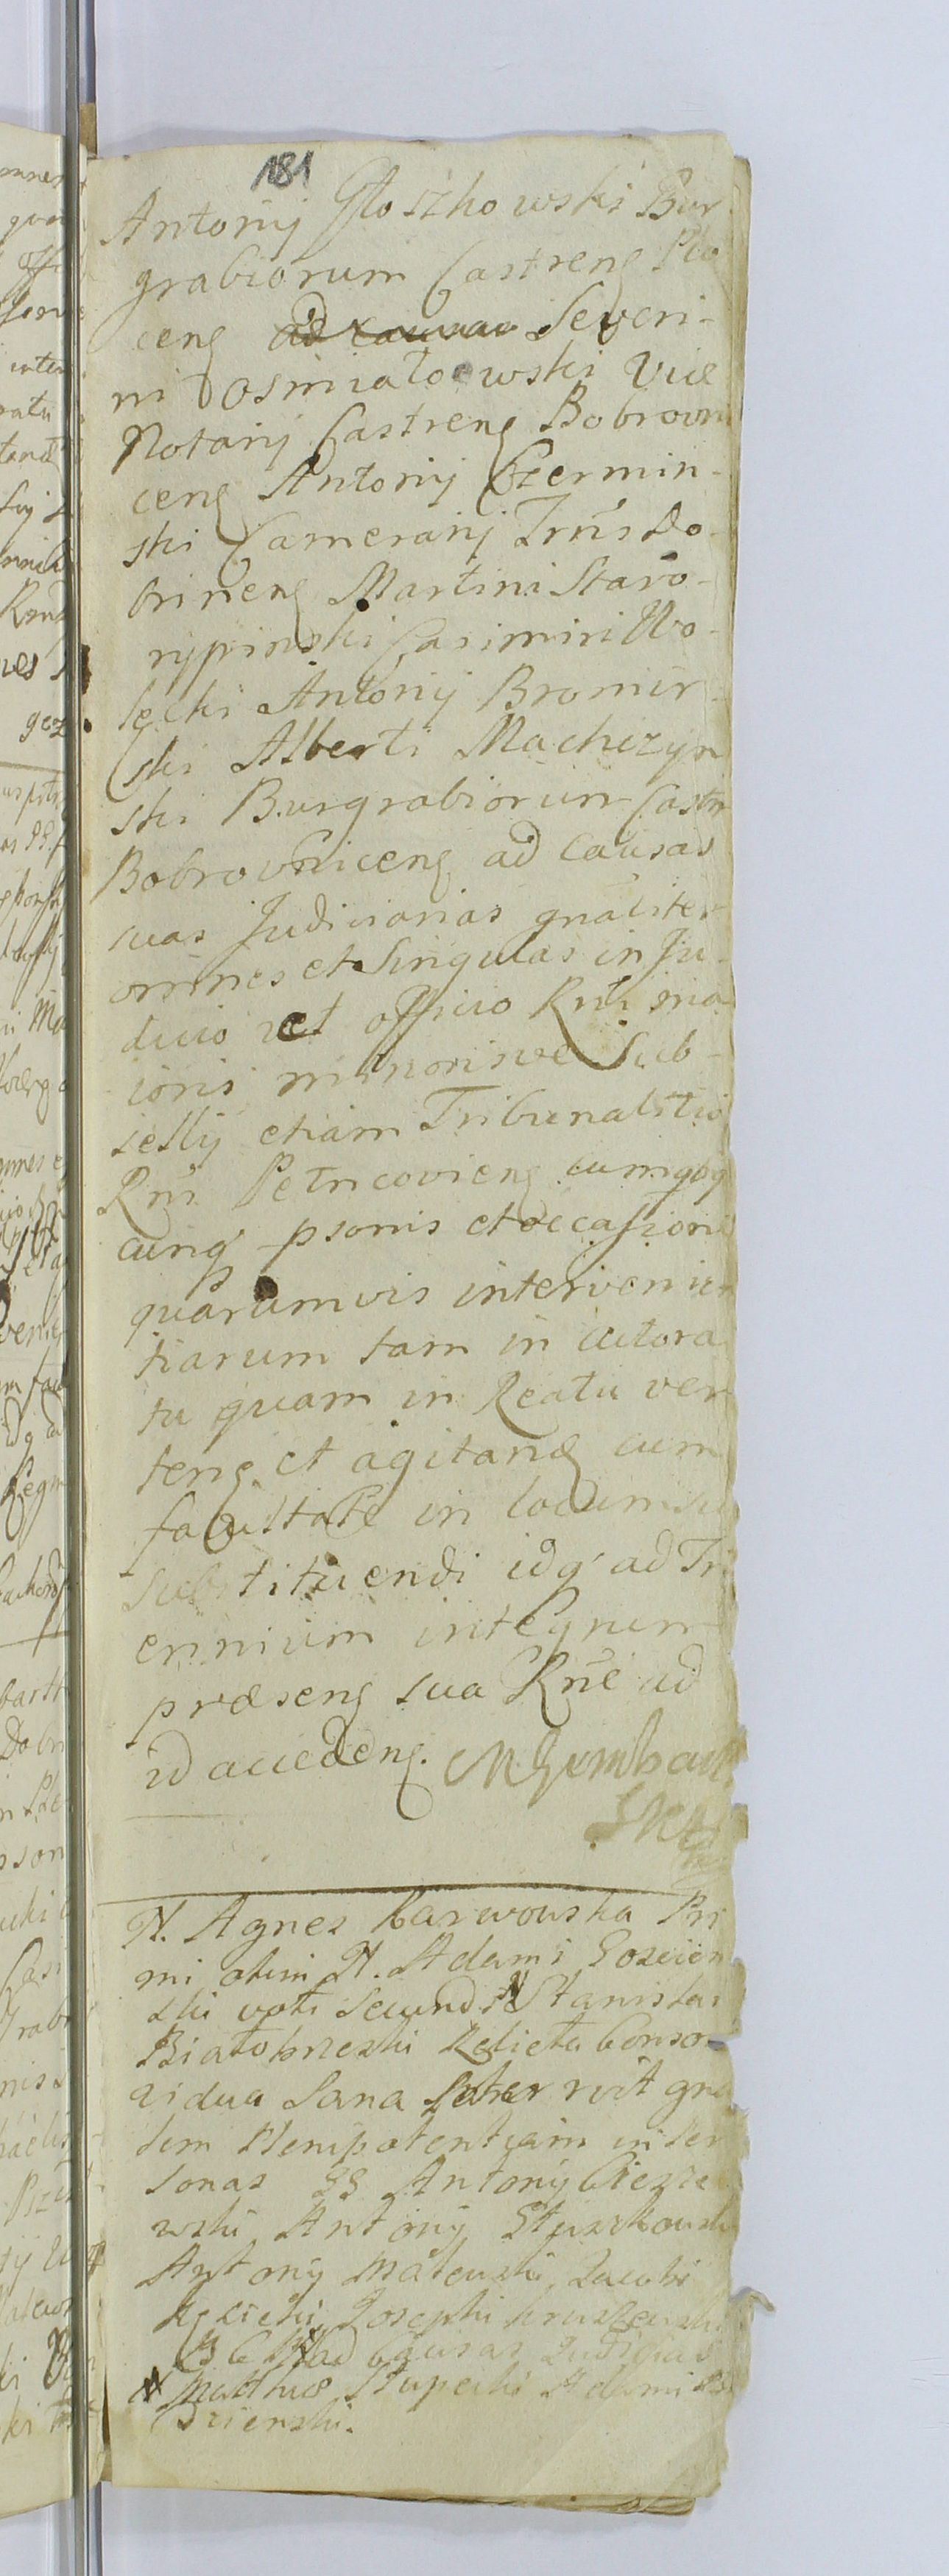 181
Antonij Głoszkowski Bur
grabiorum Castreng Plo
ceng ad causas Severi-
ni Dosmiałowski Vice
Notarij Castreng Bobrovni
ceng Antonij Czermin-
ski Cameranij Trris Do-
brineng Martini Staro-
rypinski Casimiri Wo-
lęcki Antonij Bromir-
ski Alberti Machczyn
ski Burgrabiorum Castr
Bobrovniceng ad causas
suas Judiciarias gnaliter
omnes et Singulas in Ju-
dicio vel officio Rni ma
ioris minorisve Sub-
sellij etiam Tribunalitio
Rni Petricovieng cum qbq
cunq psonis et occasione
quarumvis intervenien
tiarum tam in actora
tu quam in Reatu ver
teng et agitand cum
facultate in locum su
substituendi idq ad Tri
ennium integrum
præseng sua Rne ad
id accedeng.
N. Agnes Karwowska Pri
mi olim N. Adami Gosciến
ski voti Secundi N Stanislai
Białobrzeski Relicta Conso
vidua Sana
lem Plenipotentiam in Per
sonas GG Antonij Ciesze
wski Antonij Słuszkowski
Antonij Małewski Jacobi
Kęsicki Josephi Kruszewski
B C N ad Causas Judiciar
N Matthiæ Słupecki Adami
Dzienski.